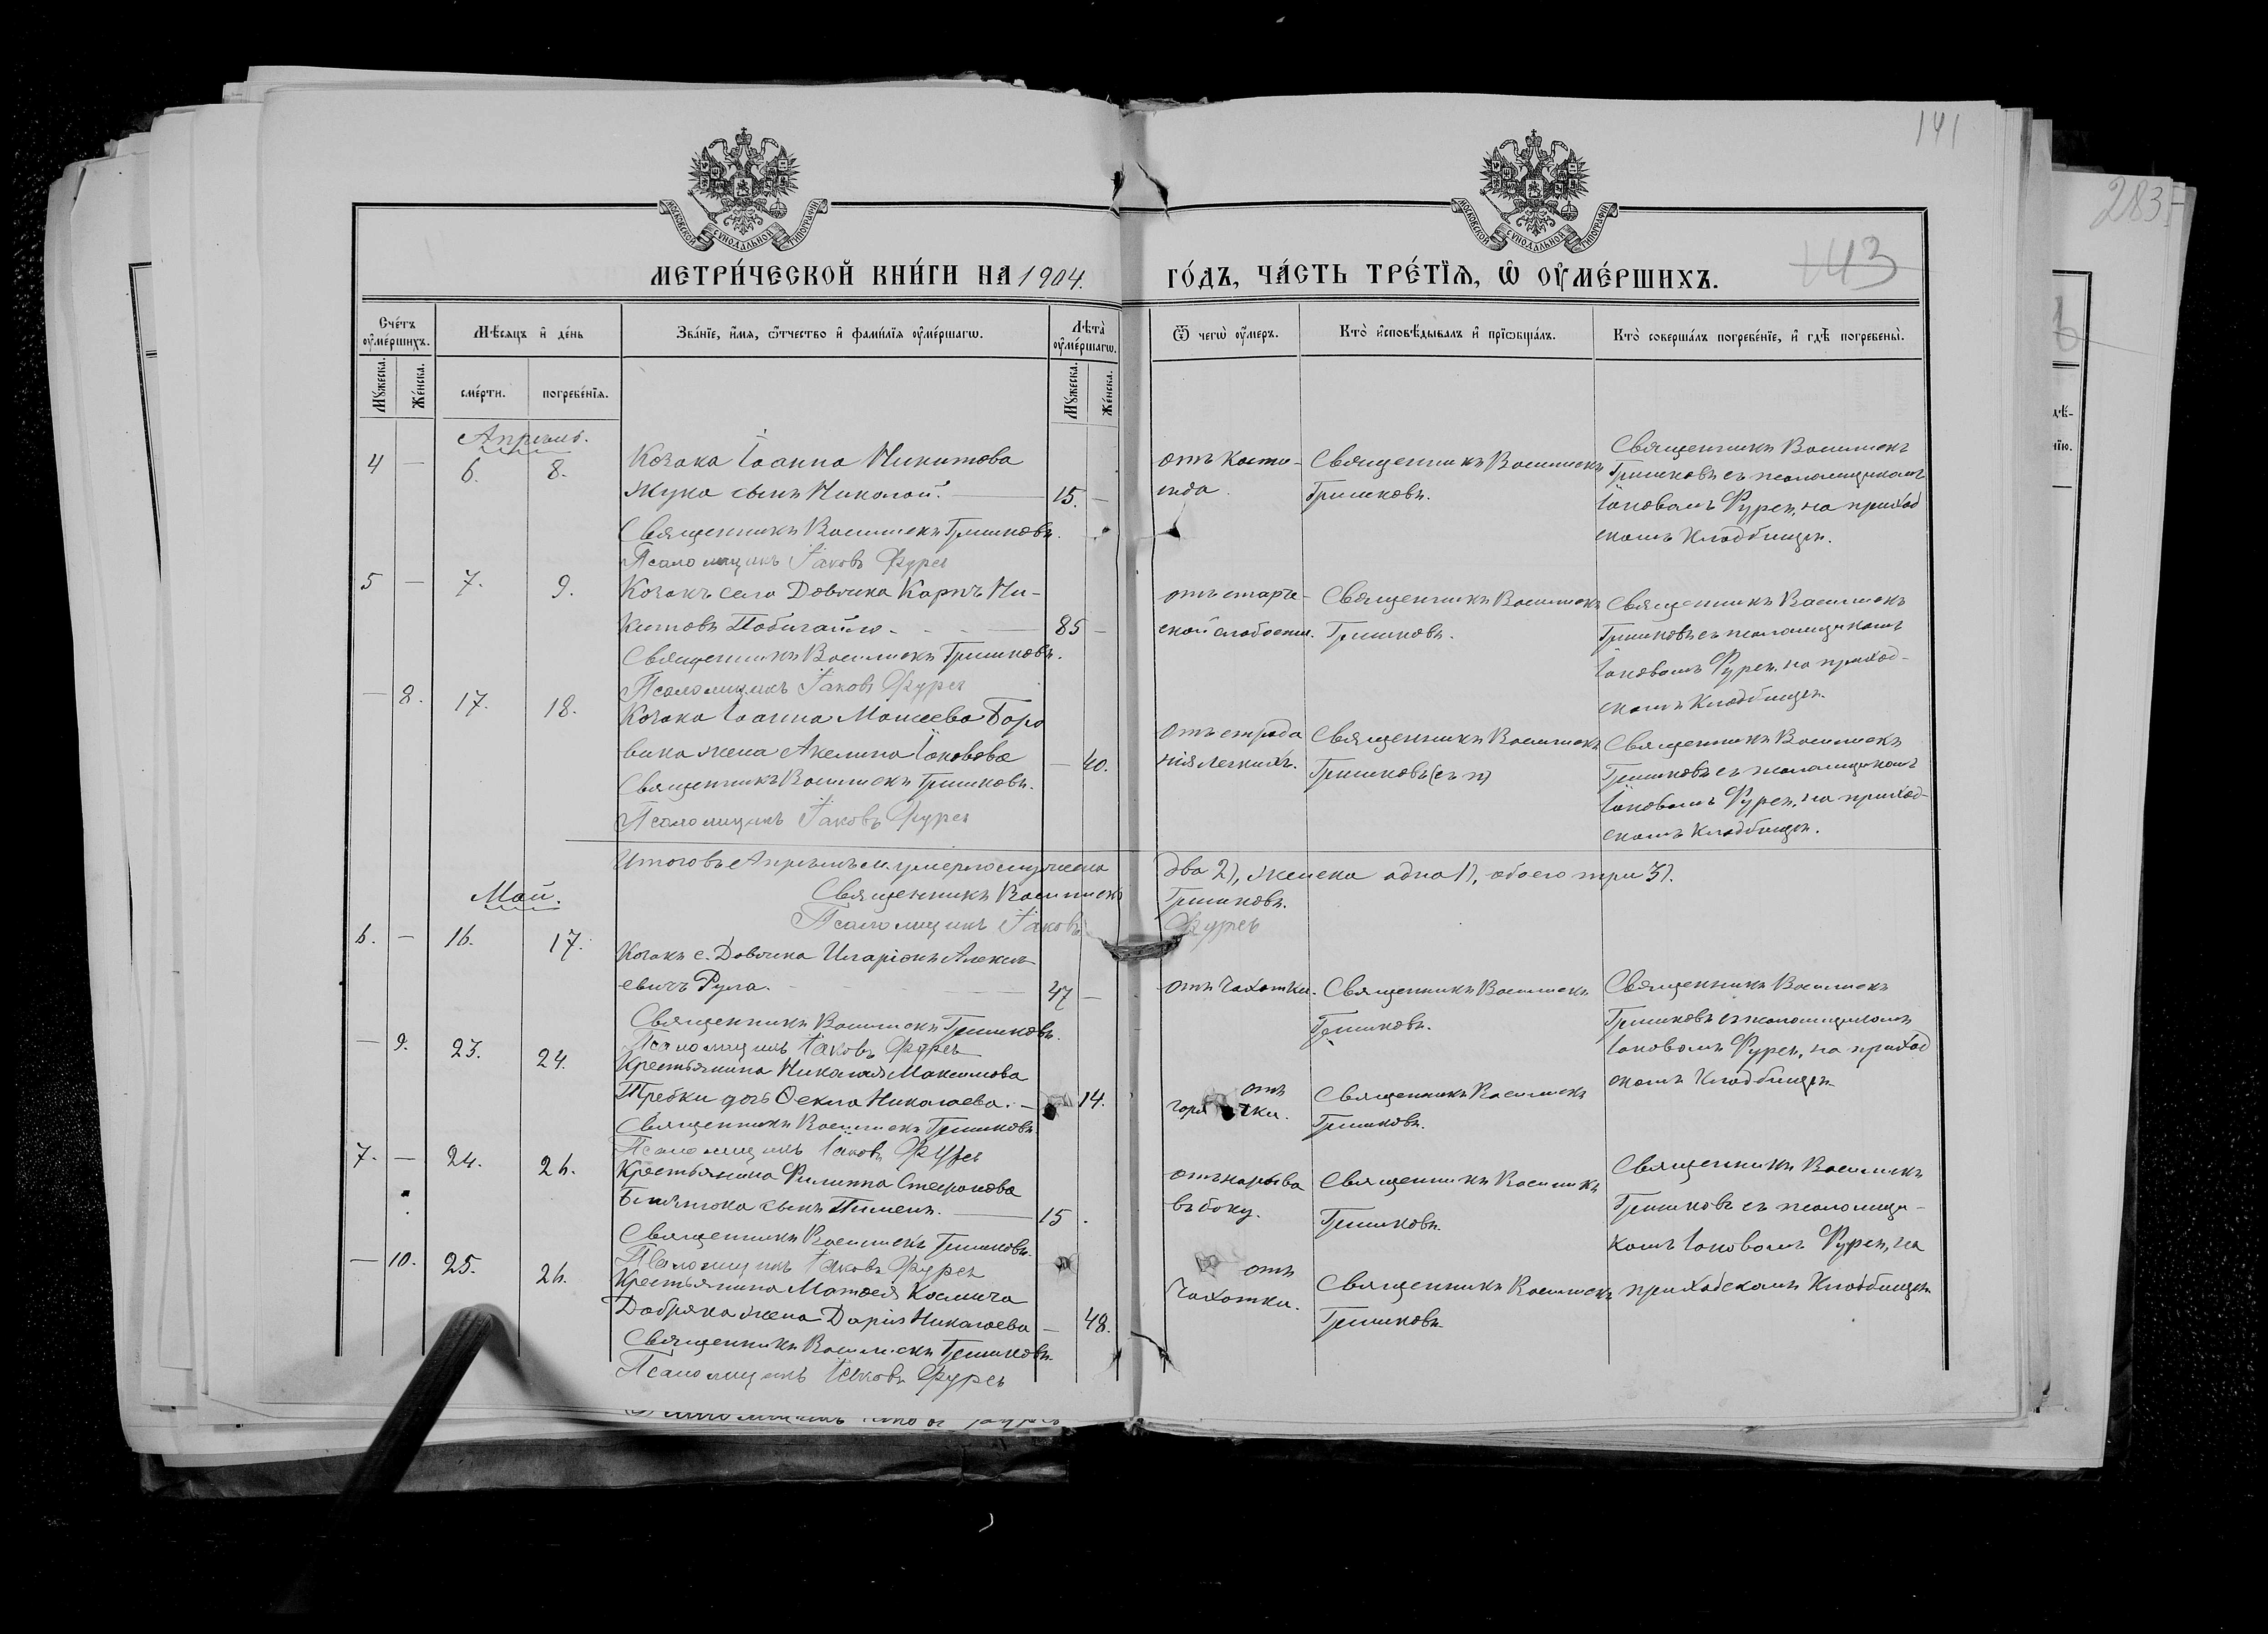 141
283
МОСКОВСКОЙ СѴНОДАЛЬНОЙ ТИПОГРАФІИ
МОСКОВСКОЙ СѴНОДАЛЬНОЙ ТИПОГРАФІИ
МЕТРИ́ЧЕСКОЙ КНИ́ГИ НА 1904.
ГО́ДЪ, ЧА́СТЬ ТРЕ́ТІѦ, Ѿ ОУ҆МЕ́РШИХЪ.
143
Сче́тъ оу҆ме́ршихъ.
Мѣ́сяцъ и҆ де́нь
Зва́нїе, и҆́мѧ, ѻ҆́тчество и҆ фами́лїѧ оу҆ме́ршагѡ.
Лѣ́та оу҆ме́ршагѡ.
Ѿ чегѡ̀ оу҆́меръ.
Кто̀ и҆сповѣ́дывалъ и҆ прїѡбща́лъ.
Кто̀ соверша́лъ погребе́нїе, и҆ гдѣ̀ погребены̀.
Мꙋ́жеска.
Же́нска.
сме́рти.
погребе́нїѧ.
Мꙋ́жеска.
Же́нска.
Апрѣль.
4 — 6. 8. Козака Іоанна Никитова
Жука сынъ Николай. — 15. —
Священникъ Василискъ Гришковъ.
Псаломщикъ Іаковъ Фурса
Священникъ Василискъ
Гришковъ.
Священникъ Василискъ
Гришковъ съ псаломщикомъ
Іаковомъ Фурсъ, на приход
скомъ кладбищѣ.
5 — 7. 9. Козакъ села Довжика Карпъ Ни-
китовъ Побигайло. — 85 —
Священникъ Василискъ Гришковъ.
Псаломщикъ Іаковъ Фурсъ
отъ старче-
ской слабости.
Священникъ Василискъ
Гришковъ.
Священникъ Василискъ
Гришковъ съ псаломщикомъ
Іаковомъ Фурсъ, на приход-
скомъ кладбищѣ.
— 8. 17. 18. Козака Іоанна Моисеева Боро
вика жена Акелина Іаковова — 40.
Священникъ Василискъ Гришковъ.
Псаломщикъ Іаковъ Фурсъ
отъ страда
нія легкихъ.
Священникъ Василискъ
Гришковъ
Священникъ Василискъ
Гришковъ съ псаломщикомъ
Іаковомъ Фурсъ, на приход-
скомъ кладбищѣ.
Итого въ Апрѣлѣ м. умерло мужеска два 2), женска одна 1), обоего три 3).
Священникъ Василискъ Гришковъ.
Псаломщикъ Іаковъ Фурсъ
Май.
6. — 16. 17. Козакъ с. Довжика Иларіонъ Алексѣ-
евичъ Рула. — 47 —
Священникъ Василискъ Гришковъ.
Псаломщикъ Іаковъ Фурсъ
отъ чахотки.
Священникъ Василискъ
Гришковъ.
Священникъ Василискъ
Гришковъ съ псаломщикомъ
Іаковомъ Фурсъ, на приход
скомъ кладбищѣ
— 9. 23. 24. Крестьянина Николая Максимова
Требки дочь Ѳекла Николаева. — 14.
Священникъ Василискъ Гришковъ
Псаломщикъ Іаковъ Фурсъ
отъ
горячки.
Священникъ Василискъ
Гришковъ.
7. — 24. 26. Крестьянина Филиппа Стефанова
сынъ Пименъ. — 15.
Священникъ Василискъ Гришковъ.
Псаломщикъ Іаковъ Фурсъ
отъ нарыва
въ боку.
Священникъ Василискъ
Гришковъ.
Священникъ Василискъ
Гришковъ съ псаломщи-
комъ Іаковомъ Фурсъ, на
приходскомъ кладбищѣ
— 10. 25. 26. Крестьянина Матѳея Космича
Добряка жена Дарія Николаева — 48.
Священникъ Василискъ Гришковъ.
Псаломщикъ Іаковъ Фурсъ
отъ
чахотки.
Священникъ Василискъ
Гришковъ